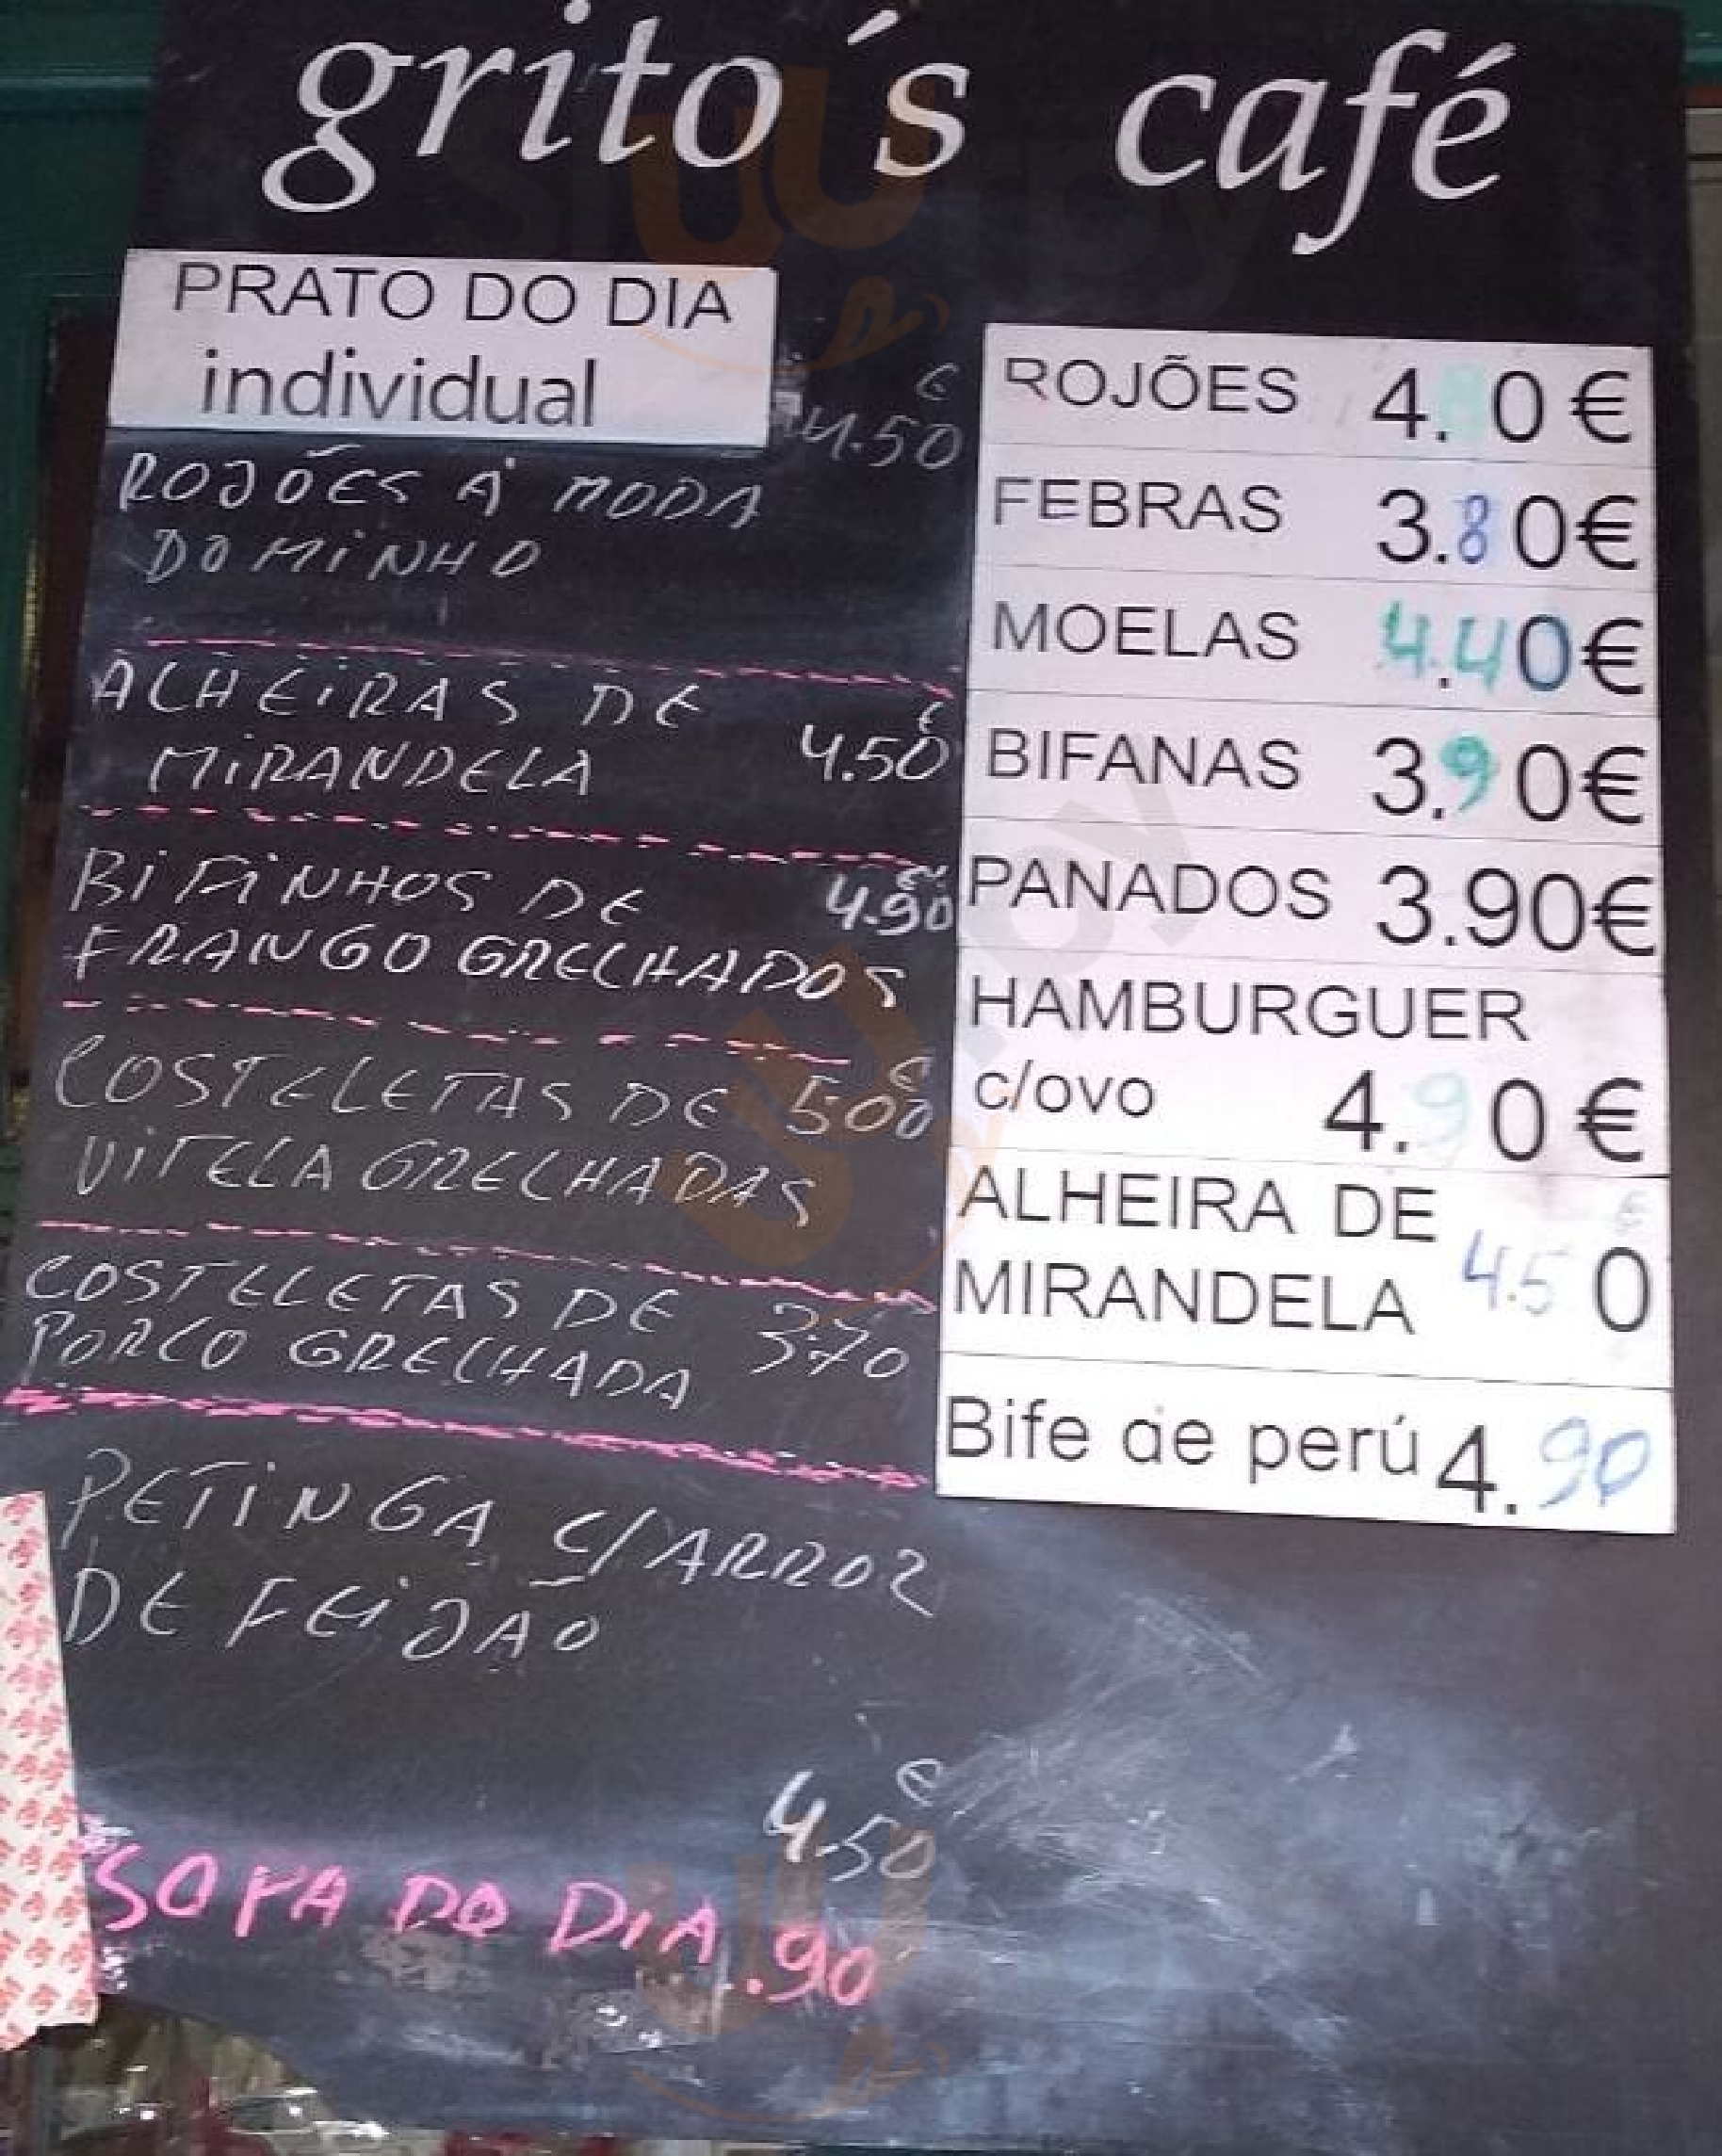 grito´s café
PRATO DO DIA
individual
€
4.50
ROJÕES A' MODA
DO MINHO
ALHEIRAS DE
€
MIRANDELA 4.50
BIFINHOS DE 4.90
FRANGO GRELHADOS
€
COSTELETAS DE 500
VITELA GRELHADAS
COSTELETAS DE 3.70
PORCO GRELHADA
PETINGA C/ARROZ
DE FEIJAO
€
4.50
SOPA DO DIA .90
ROJÕES 4. 0€
FEBRAS 3.80€
MOELAS 4.40€
BIFANAS 3.90€
PANADOS 3.90€
HAMBURGUER
c/ovo 4.90€
ALHEIRA DE
€
MIRANDELA 4.50
Bife de perú 4.90